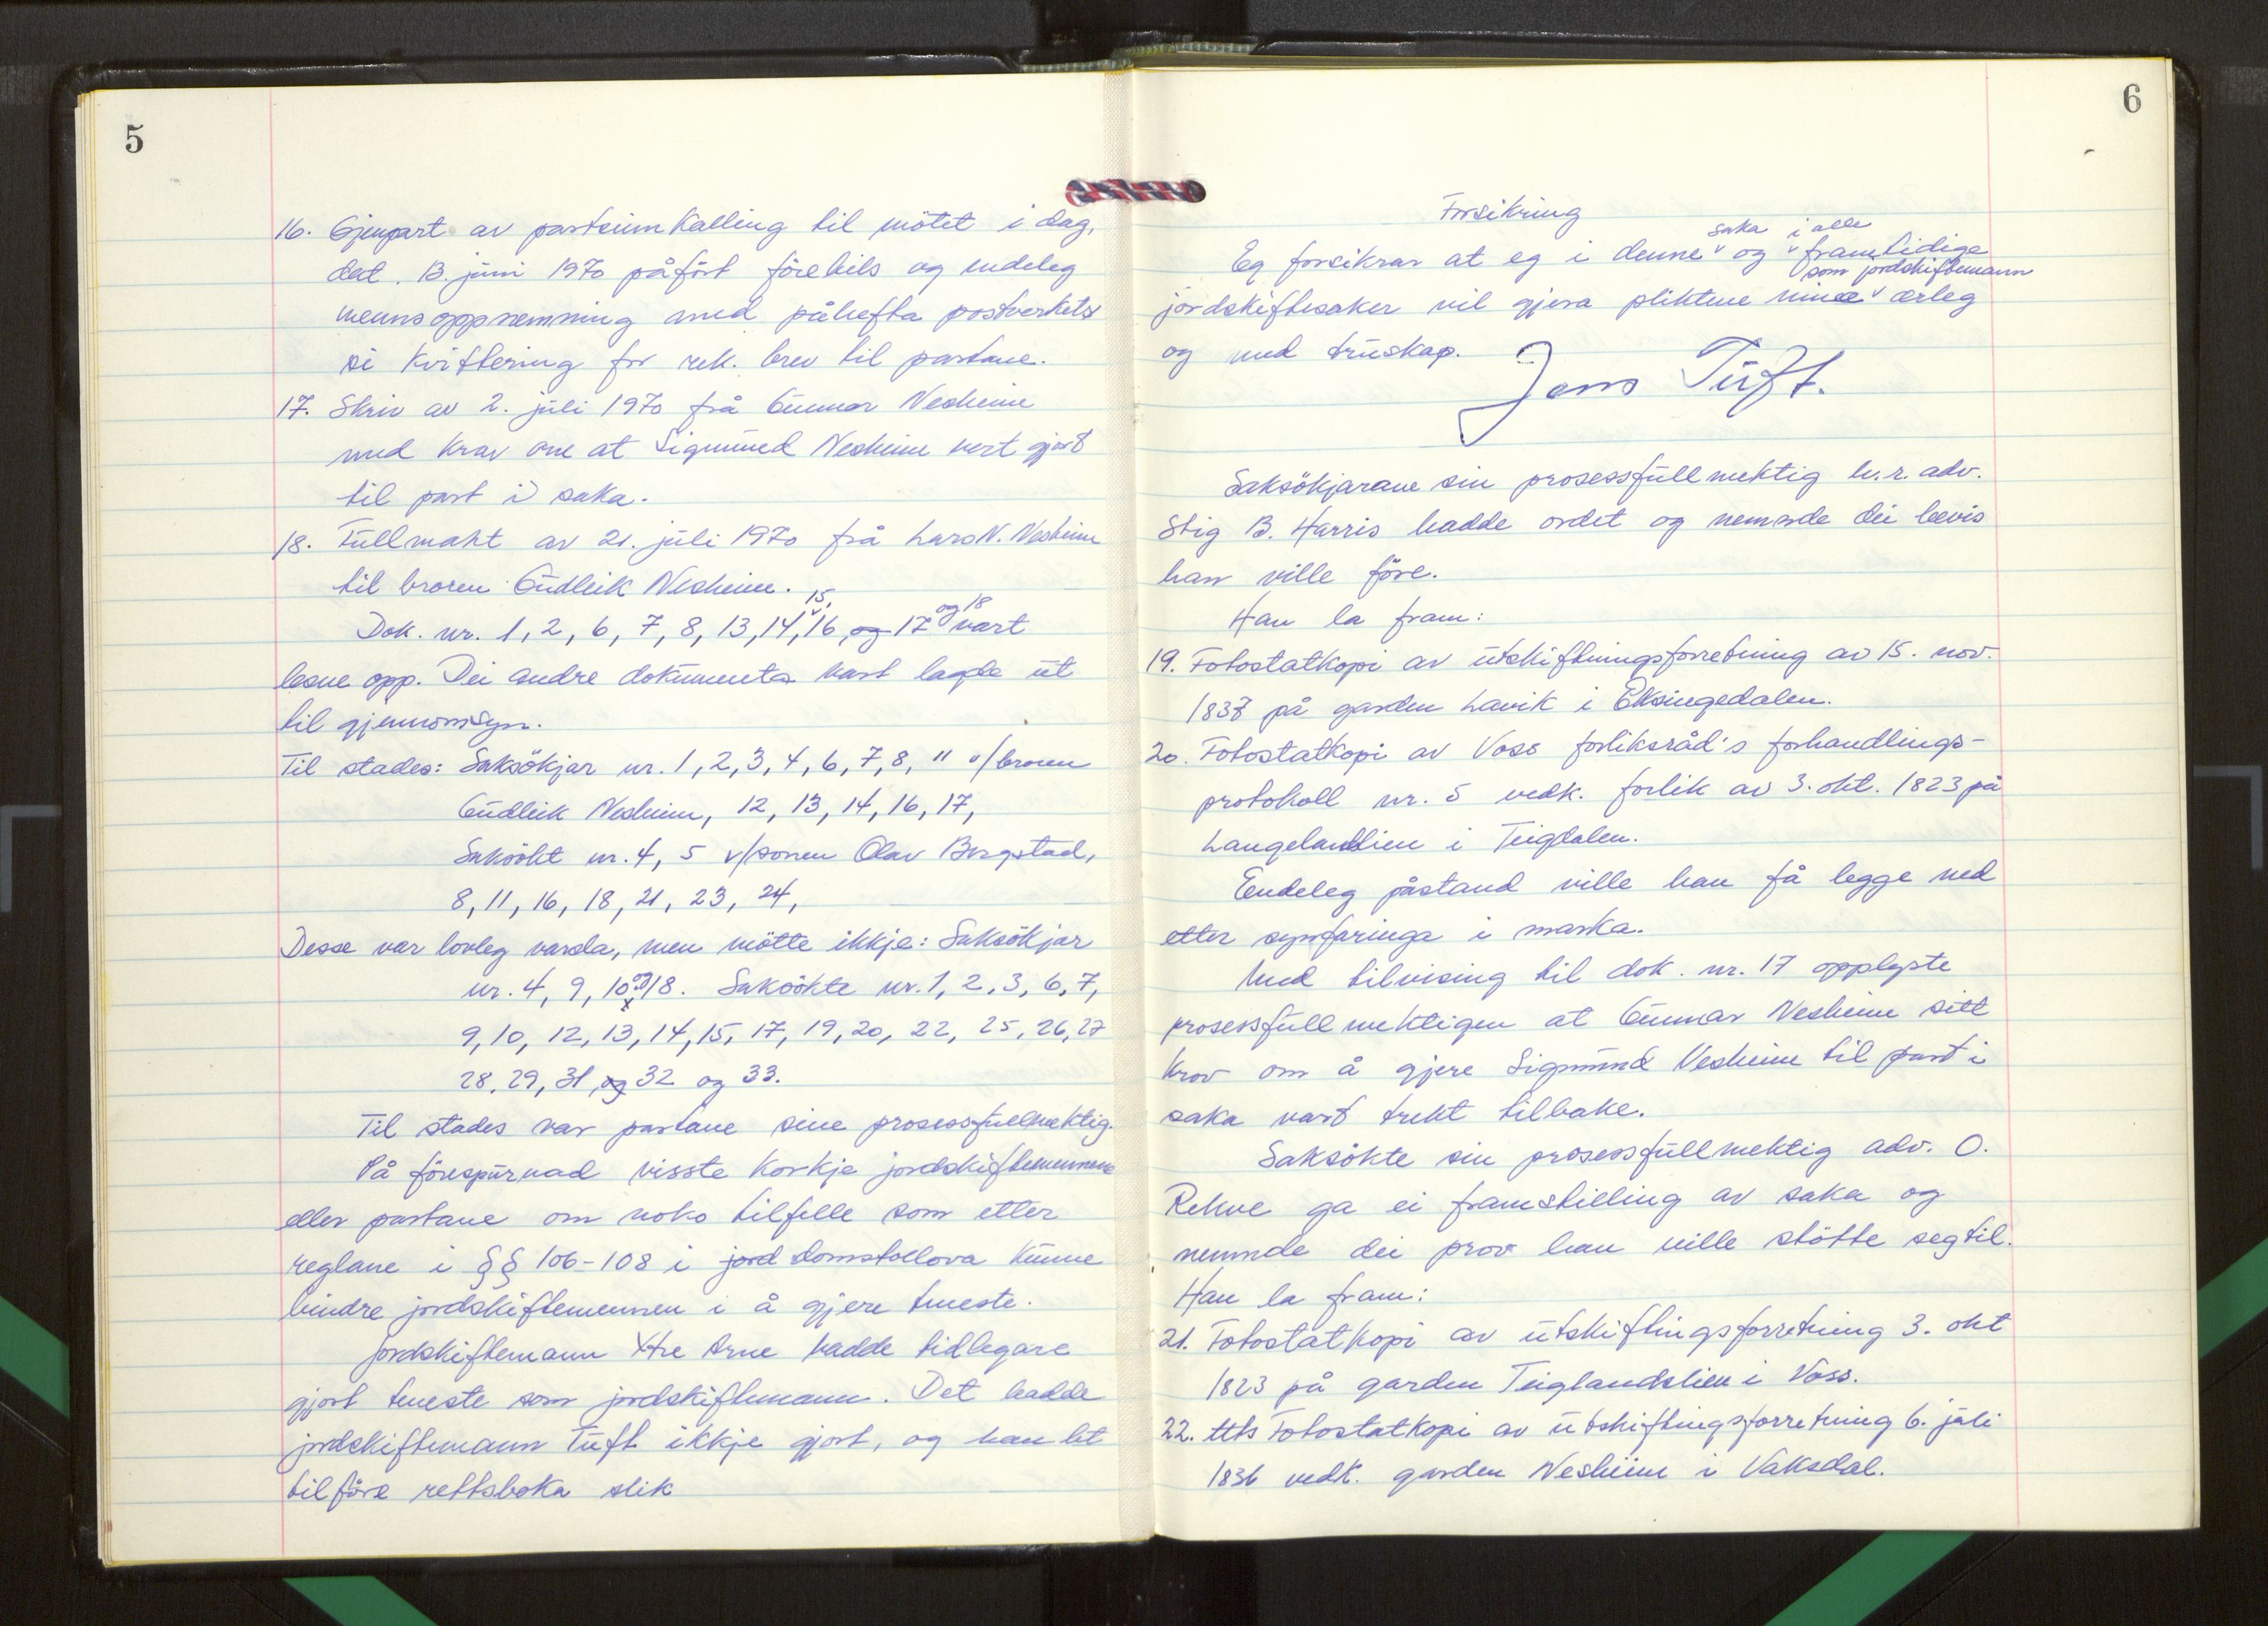 5
16. Gjenpart av partsinnkalling til mötet i dag,
dat. 13. juni 1970 påfört förebils og endeleg
mennsoppnemning med påhefta postverkets
si kvittering for rek. brev til partane.
17. Skriv av 2. juli 1970 frå Gunnar Nesheim
med krav om at Sigmund Nesheim vert gjort
til part i saka.
18. Fullmakt av 21. juli 1970 frå Lars N. Nesheim
til broren Gudleik Nesheim.
Dok. nr. 1, 2, 6, 7, 8, 13, 14, 15, 16 og 17 og 18 vart
lesne opp. Dei andre dokumenta vart lagde ut
til gjennomsyn.
Til stades: Saksökjar nr. 1, 2, 3, 4, 6, 7, 8, 11 v/broren
Gudleik Nesheim, 12, 13, 14, 16, 17,
Saksökt nr. 4, 5 v/sonen Olav Bergstad,
8, 11, 16, 18, 21, 23, 24,
Desse var lovleg varsla, men mötte ikkje: Saksökjar
nr. 4, 9, 10 og 18. Saksökte nr. 1, 2, 3, 6, 7,
9, 10, 12, 13, 14, 15, 17, 19, 20, 22, 25, 26, 27
28, 29, 31 og 32 og 33.
Til stades var partane sine prosessfullmektig.
På förespurnad visste korkje jordskiftemennene
eller partane om noko tilfelle som etter
reglane i §§ 106-108 i jord domstollova kunne
hindre jordskiftemennen i å gjere teneste.
Jordskiftemann Ytre Arne hadde tidlegare
gjort teneste som jordskiftemann. Det hadde
jordskiftemann Tuft ikkje gjort, og han let
tilföre rettsboka slik
6
Forsikring
Eg forsikrar at eg i denne saka og i alle framtidige
jordskiftesaker vil gjera pliktene mine som jordskiftemann ærleg
og med truskap.
Jens Tuft.
Saksökjarane sin prosessfullmektig h.r. adv.
Stig B. Harris hadde ordet og nemnde dei bevis
han ville före.
Han la fram:
19. Fotostatkopi av utskiftningsforretning av 15. nov.
1837 på garden Lavik i Eksingedalen.
20. Fotostatkopi av Voss forliksråd's forhandlings-
protokoll nr. 5 vedk. forlik av 3. okt. 1823 på
Langelandlien i Teigdalen.
Eendeleg påstand ville han få legge ned
etter synfaringa i marka.
Med tilvising til dok. nr. 17 opplyste
prosessfullmektigen at Gunnar Nesheim sitt
krav om å gjere Sigmund Nesheim til part i
saka vart trekt tilbake.
Saksökte sin prosessfullmektig adv. O.
Rekve ga ei framstilling av saka og
nemnde dei prov han ville stötte seg til.
Han la fram:
21. Fotostatkopi av utskiftingsforretning 3. okt
1823 på garden Teiglandslien i Voss.
22. Fotostatkopi av utskiftingsforretning 6. juli
1836 vedk. garden Nesheim i Vaksdal.